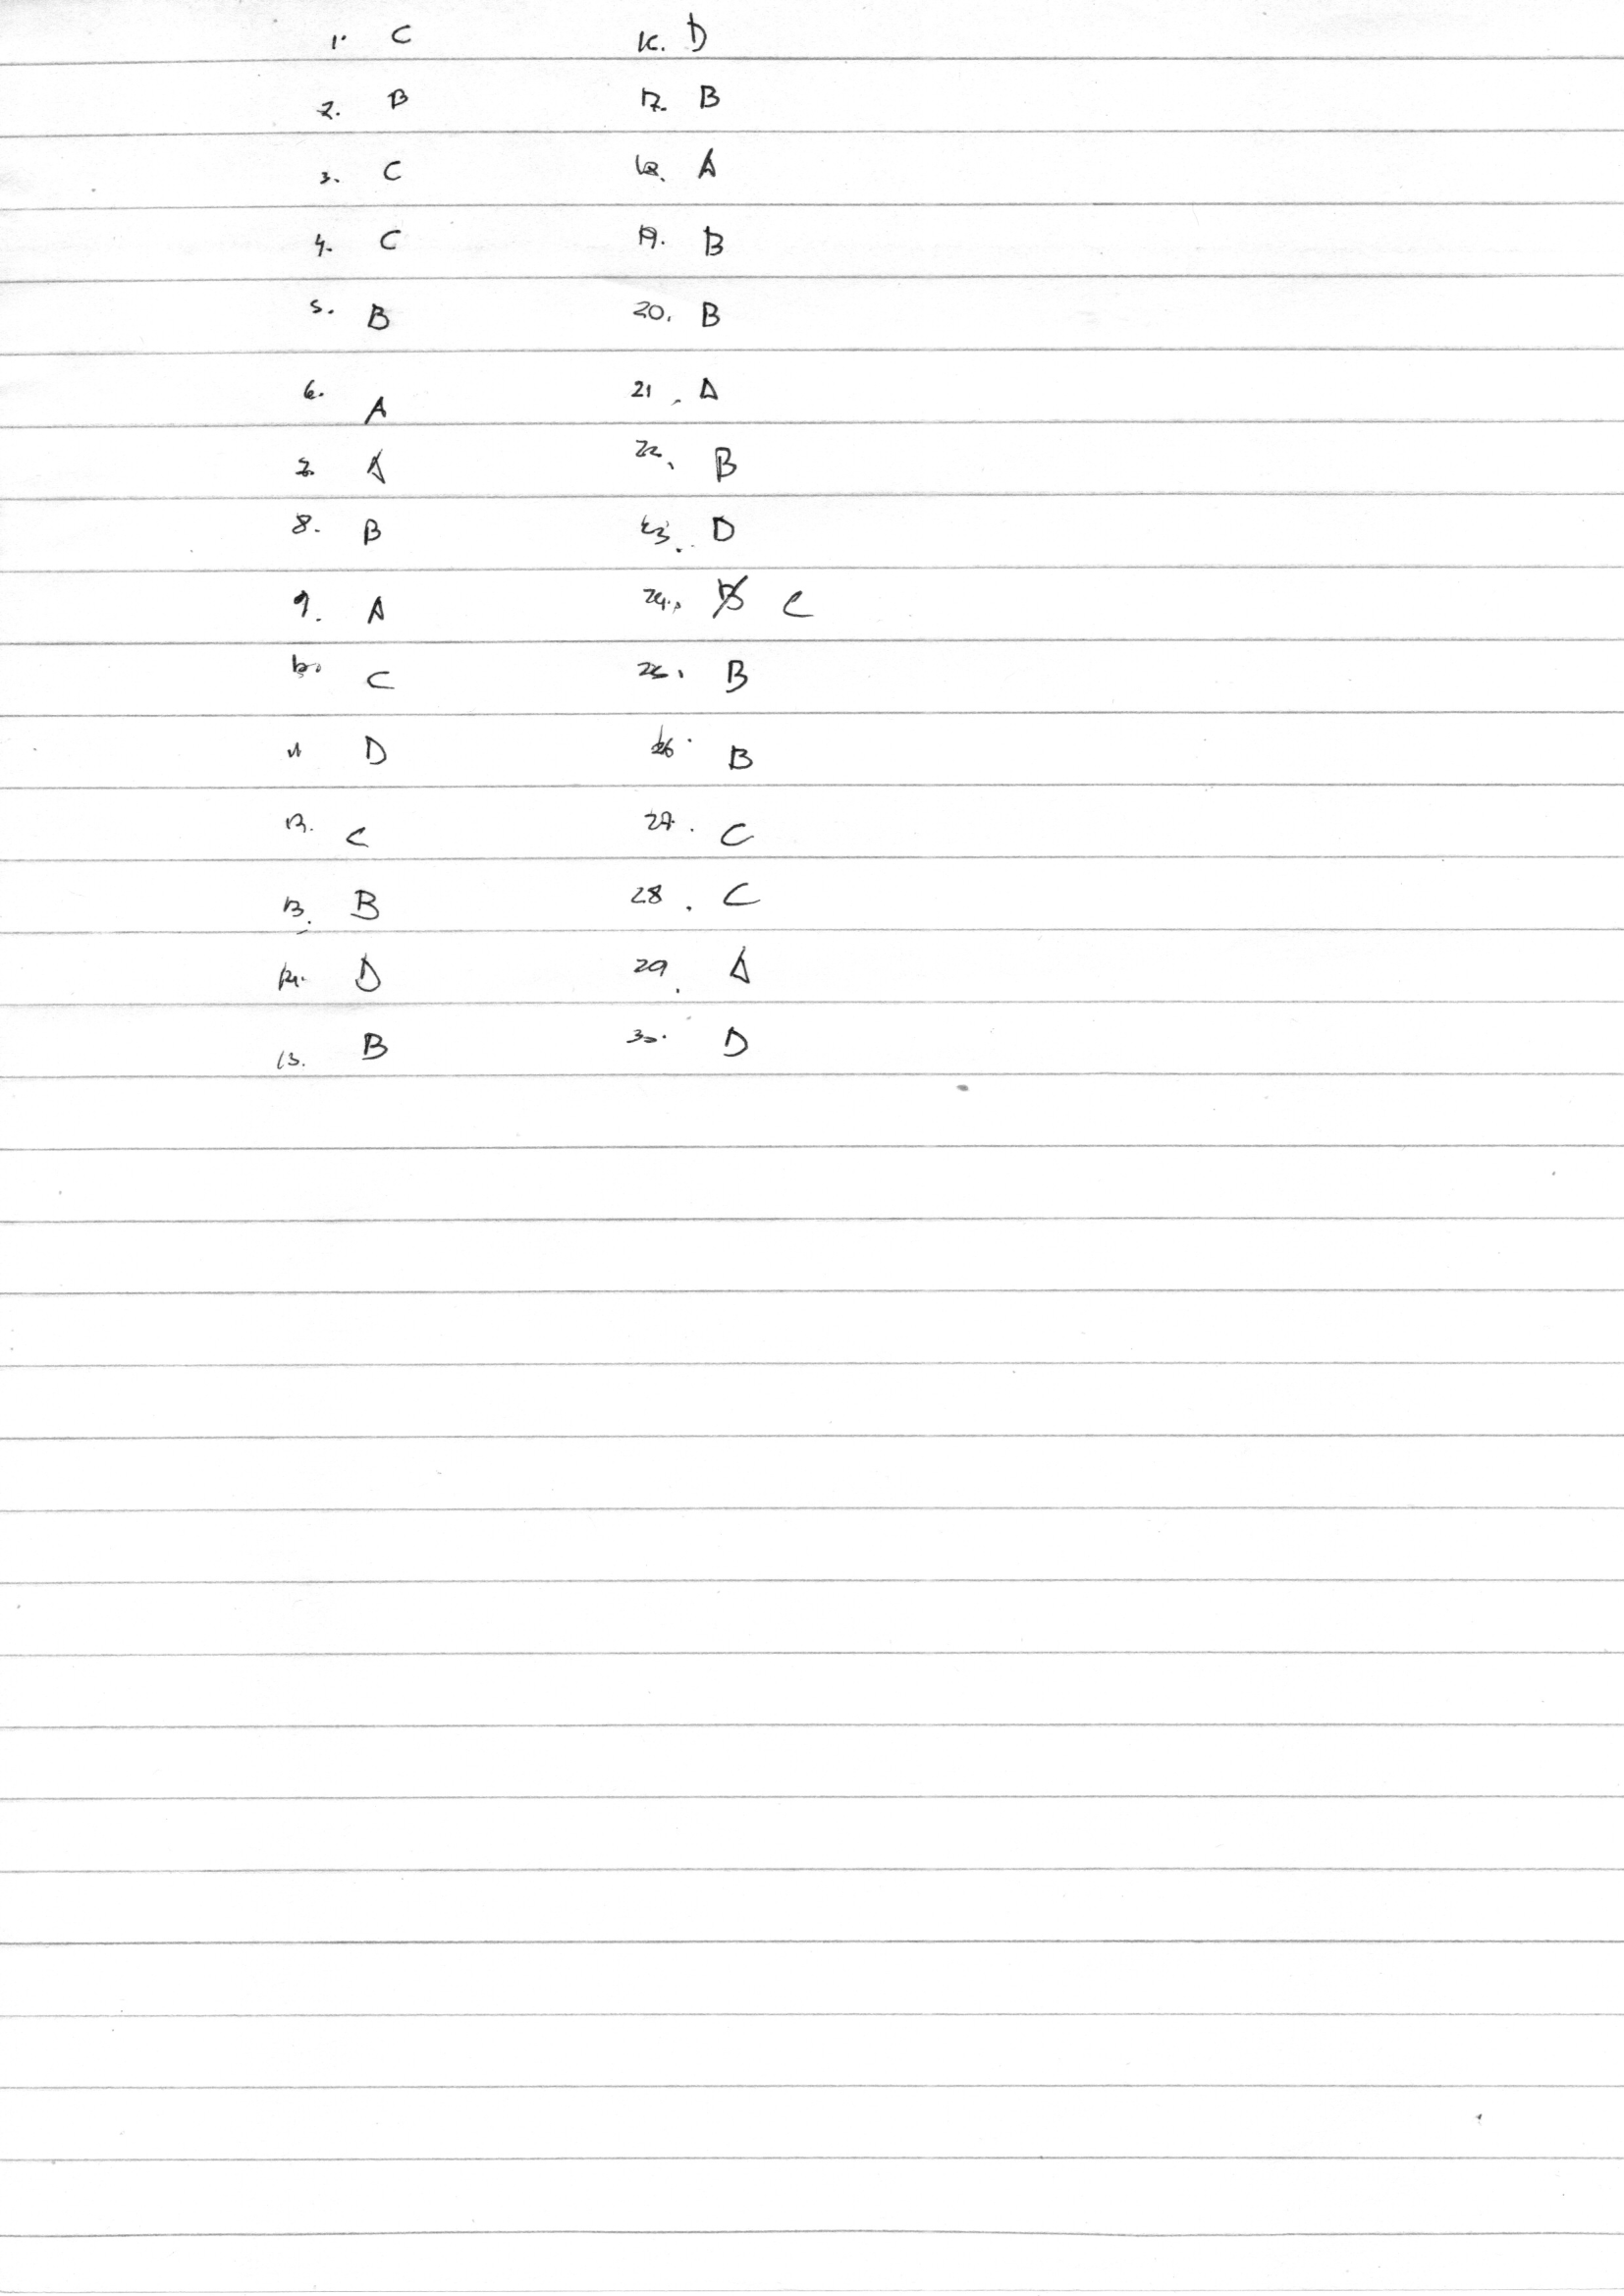 1. C
2. B
3. C
4. C
5. B
6. A
7. A
8. B
9. A
10. C
11 D
12. C
13. B
14. D
15. B
16. D
17. B
18. A
19. B
20. B
21. A
22. B
23. D
24. B C
25. B
26. B
27. C
28. C
29. A
30. D